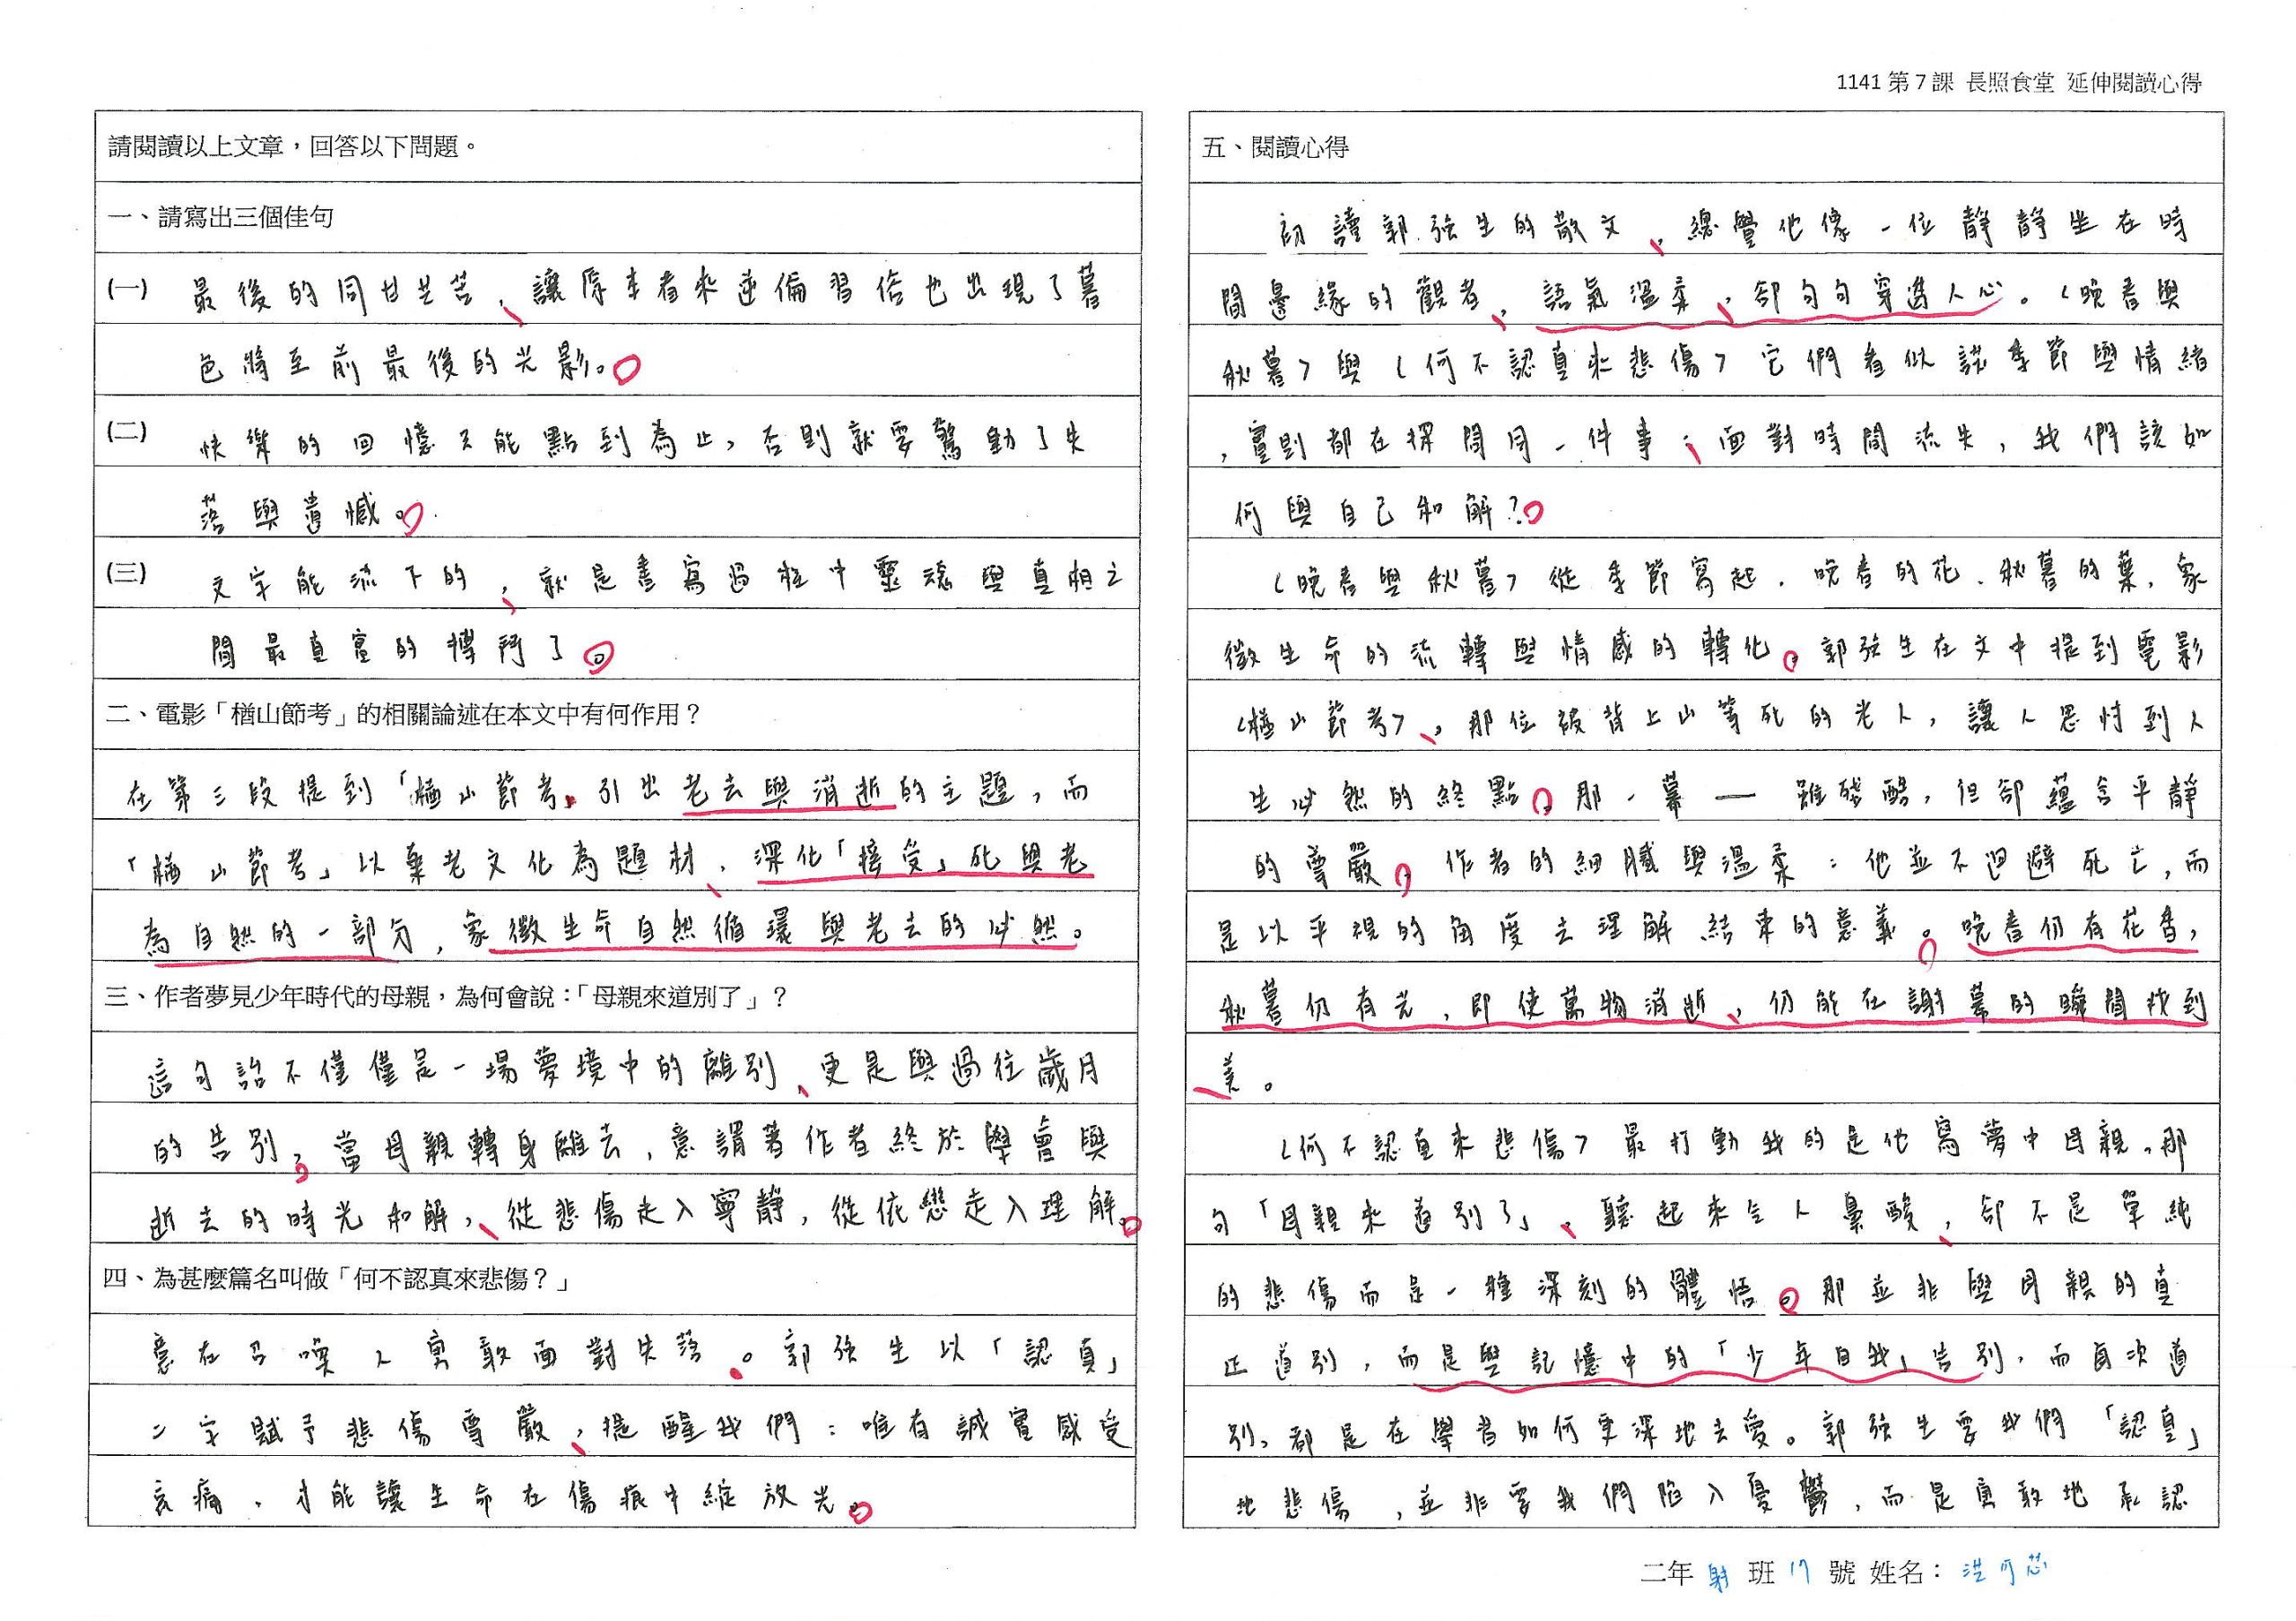 1141 第 7 課 長照食堂 延伸閱讀心得
請閱讀以上文章，回答以下問題。
一、請寫出三個佳句
(一) 最後的同甘共苦，讓原本看來逆倫習俗也出現了暮
色將至前最後的光影。
(二) 快樂的回憶只能點到為止，否則就要驚動了失
落與遺憾。
(三) 文字能流下的，就是書寫過程中靈魂與真相之
間最真實的搏鬥了。
二、電影「楢山節考」的相關論述在本文中有何作用？
在第三段提到「楢山節考」引出老去與消逝的主題，而
「楢山節考」以棄老文化為題材，深化「接受」死與老
為自然的一部分，象徵生命自然循環與老去的必然。
三、作者夢見少年時代的母親，為何會說：「母親來道別了」？
這句話不僅僅是一場夢境中的離別，更是與過往歲月
的告別，當母親轉身離去，意謂著作者終於學會與
逝去的時光和解，從悲傷走入寧靜，從依戀走入理解。
四、為甚麼篇名叫做「何不認真來悲傷？」
意在召喚人勇敢面對失落。郭強生以「認真」
二字賦予悲傷尊嚴，提醒我們：唯有誠實感受
哀痛，才能讓生命在傷痕中綻放光。
五、閱讀心得
初讀郭強生的散文，總覺他像一位靜靜坐在時
間邊緣的觀者，語氣溫柔，卻句句穿透人心。〈晚春與
秋暮〉與〈何不認真來悲傷〉它們看似談季節與情緒
，實則都在探問同一件事：面對時間流失，我們該如
何與自己和解？
〈晚春與秋暮〉從季節寫起，晚春的花、秋暮的葉，象
徵生命的流轉與情感的轉化。郭強生在文中提到電影
〈楢山節考〉，那位被背上山等死的老人，讓人思忖到人
生必然的終點。那一幕—雖殘酷，但卻蘊含平靜
的尊嚴，作者的細膩與溫柔：他並不迴避死亡，而
是以平視的角度去理解結束的意義。晚春仍有花香，
秋暮仍有光，即使萬物消逝，仍能在謝幕的瞬間找到
美。
〈何不認真來悲傷〉最打動我的是他寫夢中母親，那
句「母親來道別了」，聽起來令人鼻酸，卻不是單純
的悲傷而是一種深刻的體悟。那並非與母親的真
正道別，而是與記憶中的「少年自我」告別，而每次道
別，都是在學著如何更深地去愛。郭強生要我們「認真」
地悲傷，並非要我們陷入憂鬱，而是勇敢地承認
二年 射 班 17 號 姓名： 洪可芯